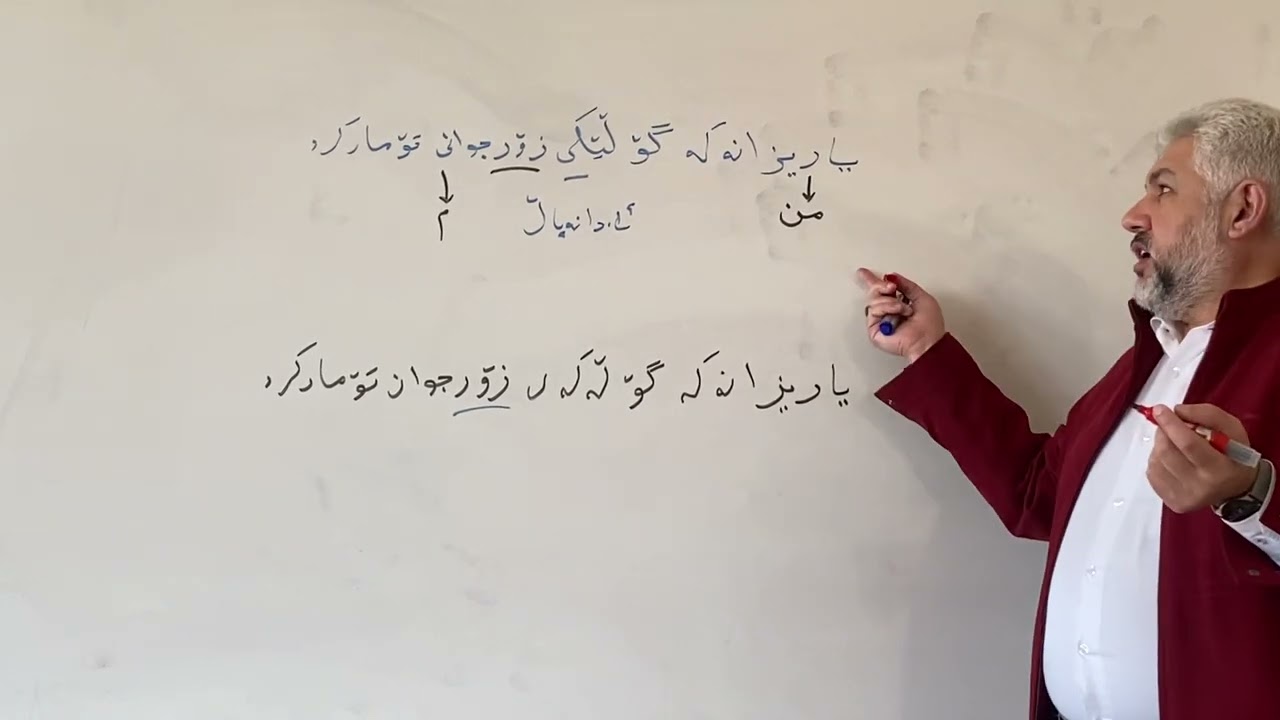 یاریزانەکە گۆڵێکی زۆر جوانی تۆمارکرد
من م
ئی. دانەپاڵ
یاریزانەکە گۆڵەکەی زۆر جوان تۆمارکرد